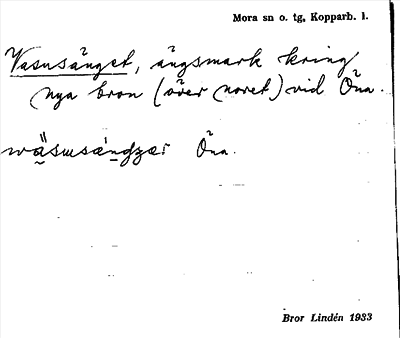 Mora sn o. tg, Kopparb. l.
Vasusänget, ängsmark kring
nya bron (över noret) vid Öna.
Öna.
Bror Lindén 1933